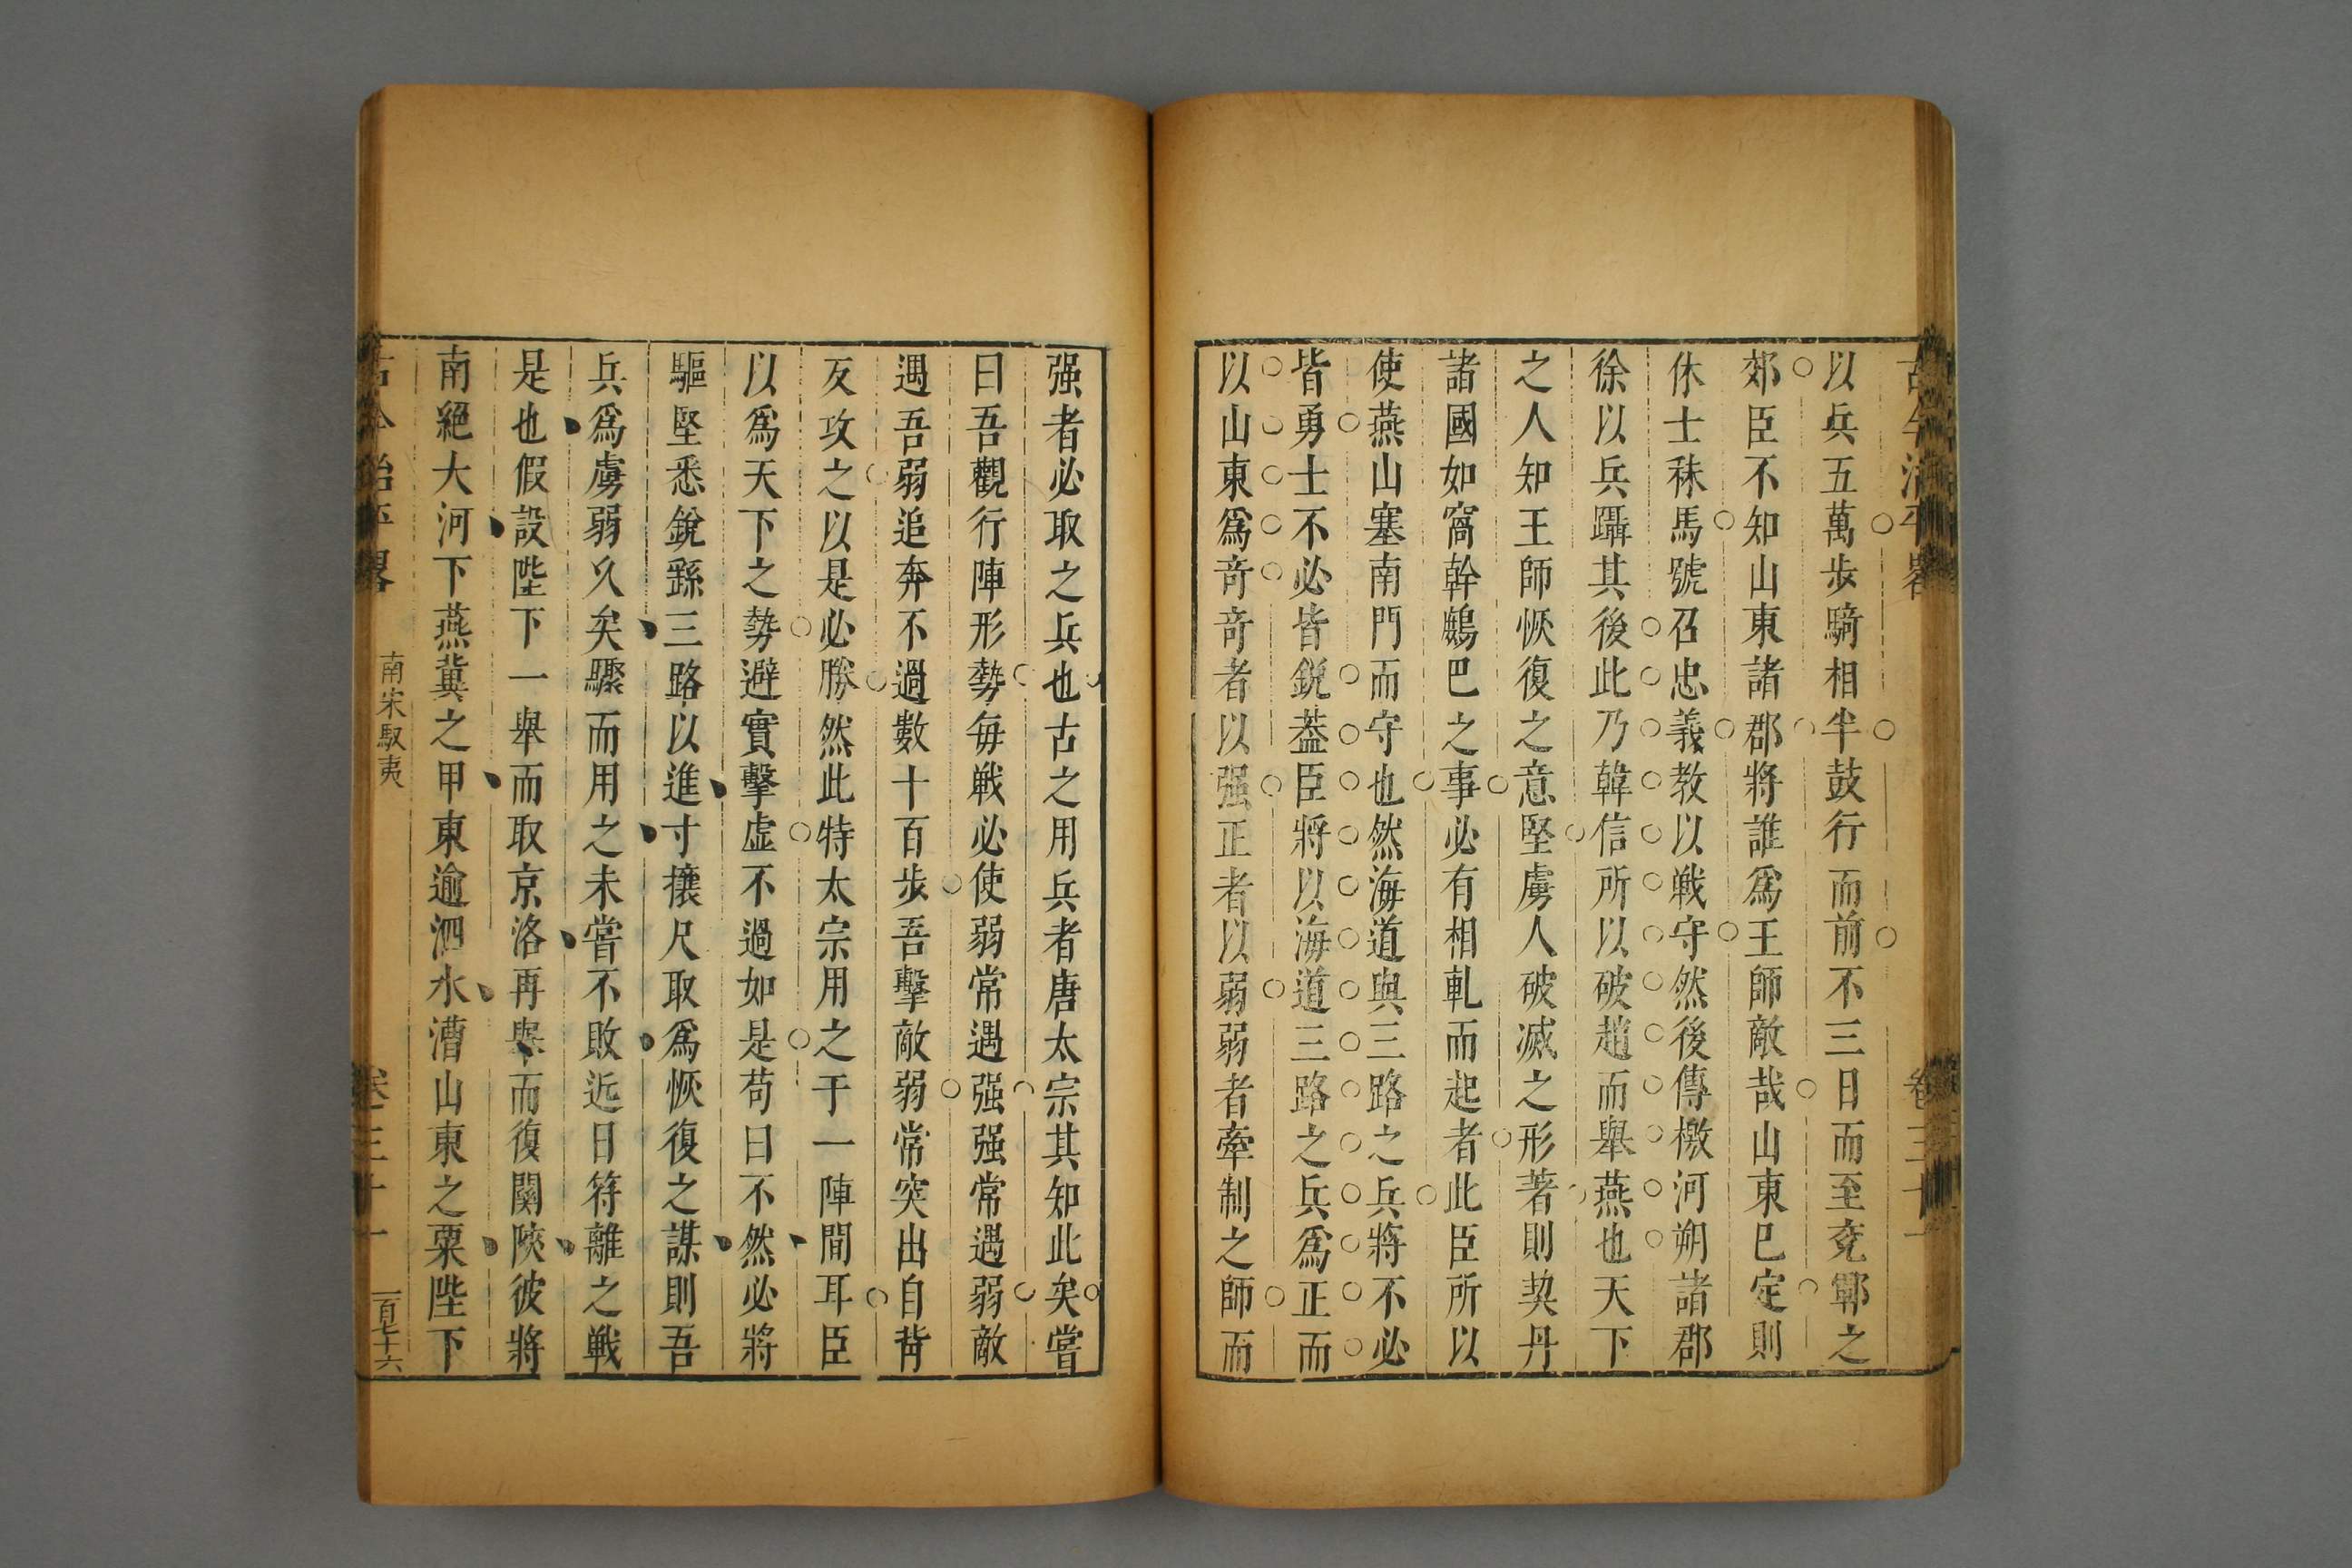 古今治平畧
卷三十一
以兵五萬歩騎相半鼓行而前不三日而至兖鄆之
郊臣不知山東諸郡將誰爲王師敵哉山東已定則
休士秣馬號召忠義教以戰守然後傳檄河朔諸郡
徐以兵躡其後此乃韓信所以破趙而舉燕也天下
之人知王師恢復之意堅虜人破滅之形著則契丹
諸國如窩幹鷓巴之事必有相軋而起者此臣所以
使燕山塞南門而守也然海道與三路之兵將不必
皆勇士不必皆銳葢臣將以海道三路之兵爲正而
以山東爲竒竒者以强正者以弱弱者牽制之師而
强者必取之兵也古之用兵者唐太宗其知此矣嘗
曰吾觀行陣形勢每戰必使弱常遇强强常遇弱敵
遇吾弱追奔不過數十百歩吾擊敵弱常突出自背
反攻之以是必勝然此特太宗用之于一陣間耳臣
以爲天下之勢避實擊虛不過如是苟曰不然必將
驅堅悉銳繇三路以進寸攘尺取爲恢復之謀則吾
兵爲虜弱久矣驟而用之未嘗不敗近日符離之戰
是也假設陛下一舉而取京洛再舉而復關陝彼將
南絕大河下燕冀之甲東逾泗水漕山東之粟陛下
古今治平畧
南宋馭夷
卷三十一
一百七十六